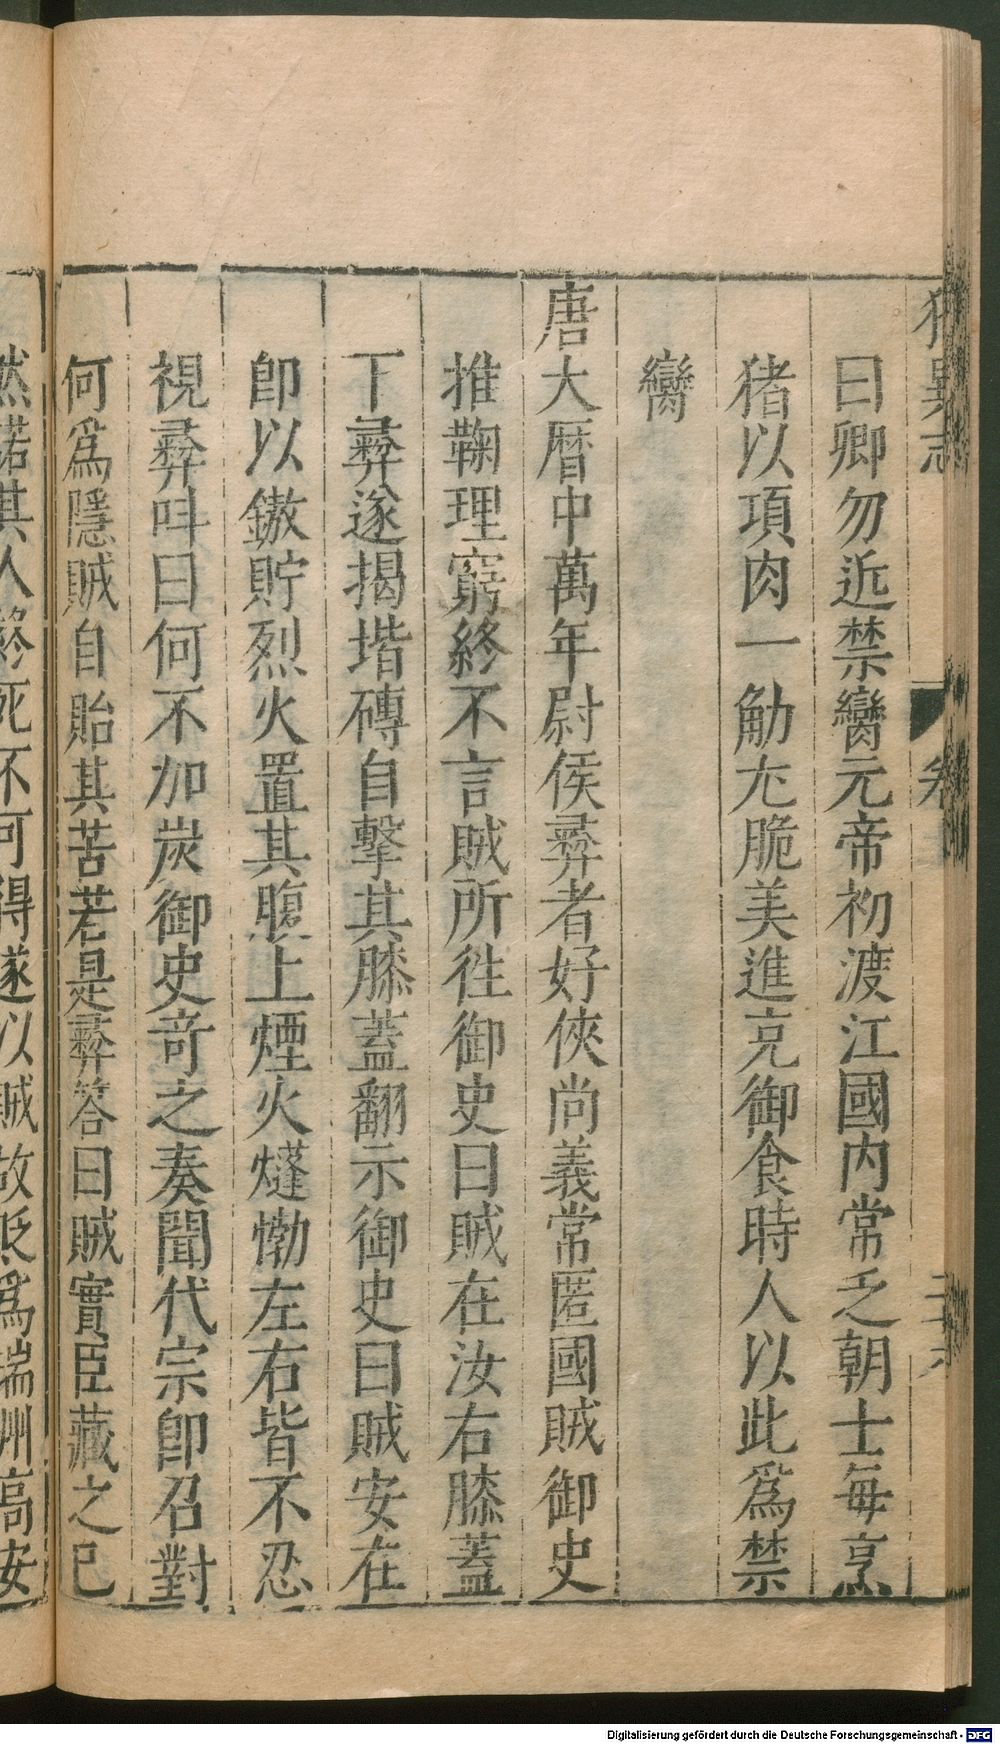 獨異志 卷
曰卿勿近禁臠元帝初渡江國内常乏朝士每烹
猪以項肉一觔尢脆美進充御食時人以此爲禁
臠
唐大曆中萬年尉侯彛者好俠尚義常匿國賊御史
推鞠理窮終不言賊所徃御史曰賊在汝右膝蓋
下彛遂揭堦磚自擊其膝蓋翻示御史曰賊安在
卽以鏊貯烈火置其腹上煙火熢㶿左右皆不忍
視彛呌曰何不加炭御史竒之奏聞代宗卽召對
何爲隱賊自貽其苦若是彛答曰賊實臣藏之已
然諾其人終死不可得遂以賊故贬爲端州高安
Digitalisierung gefördert durch die Deutsche Forschungsgemeinschaft - DFG